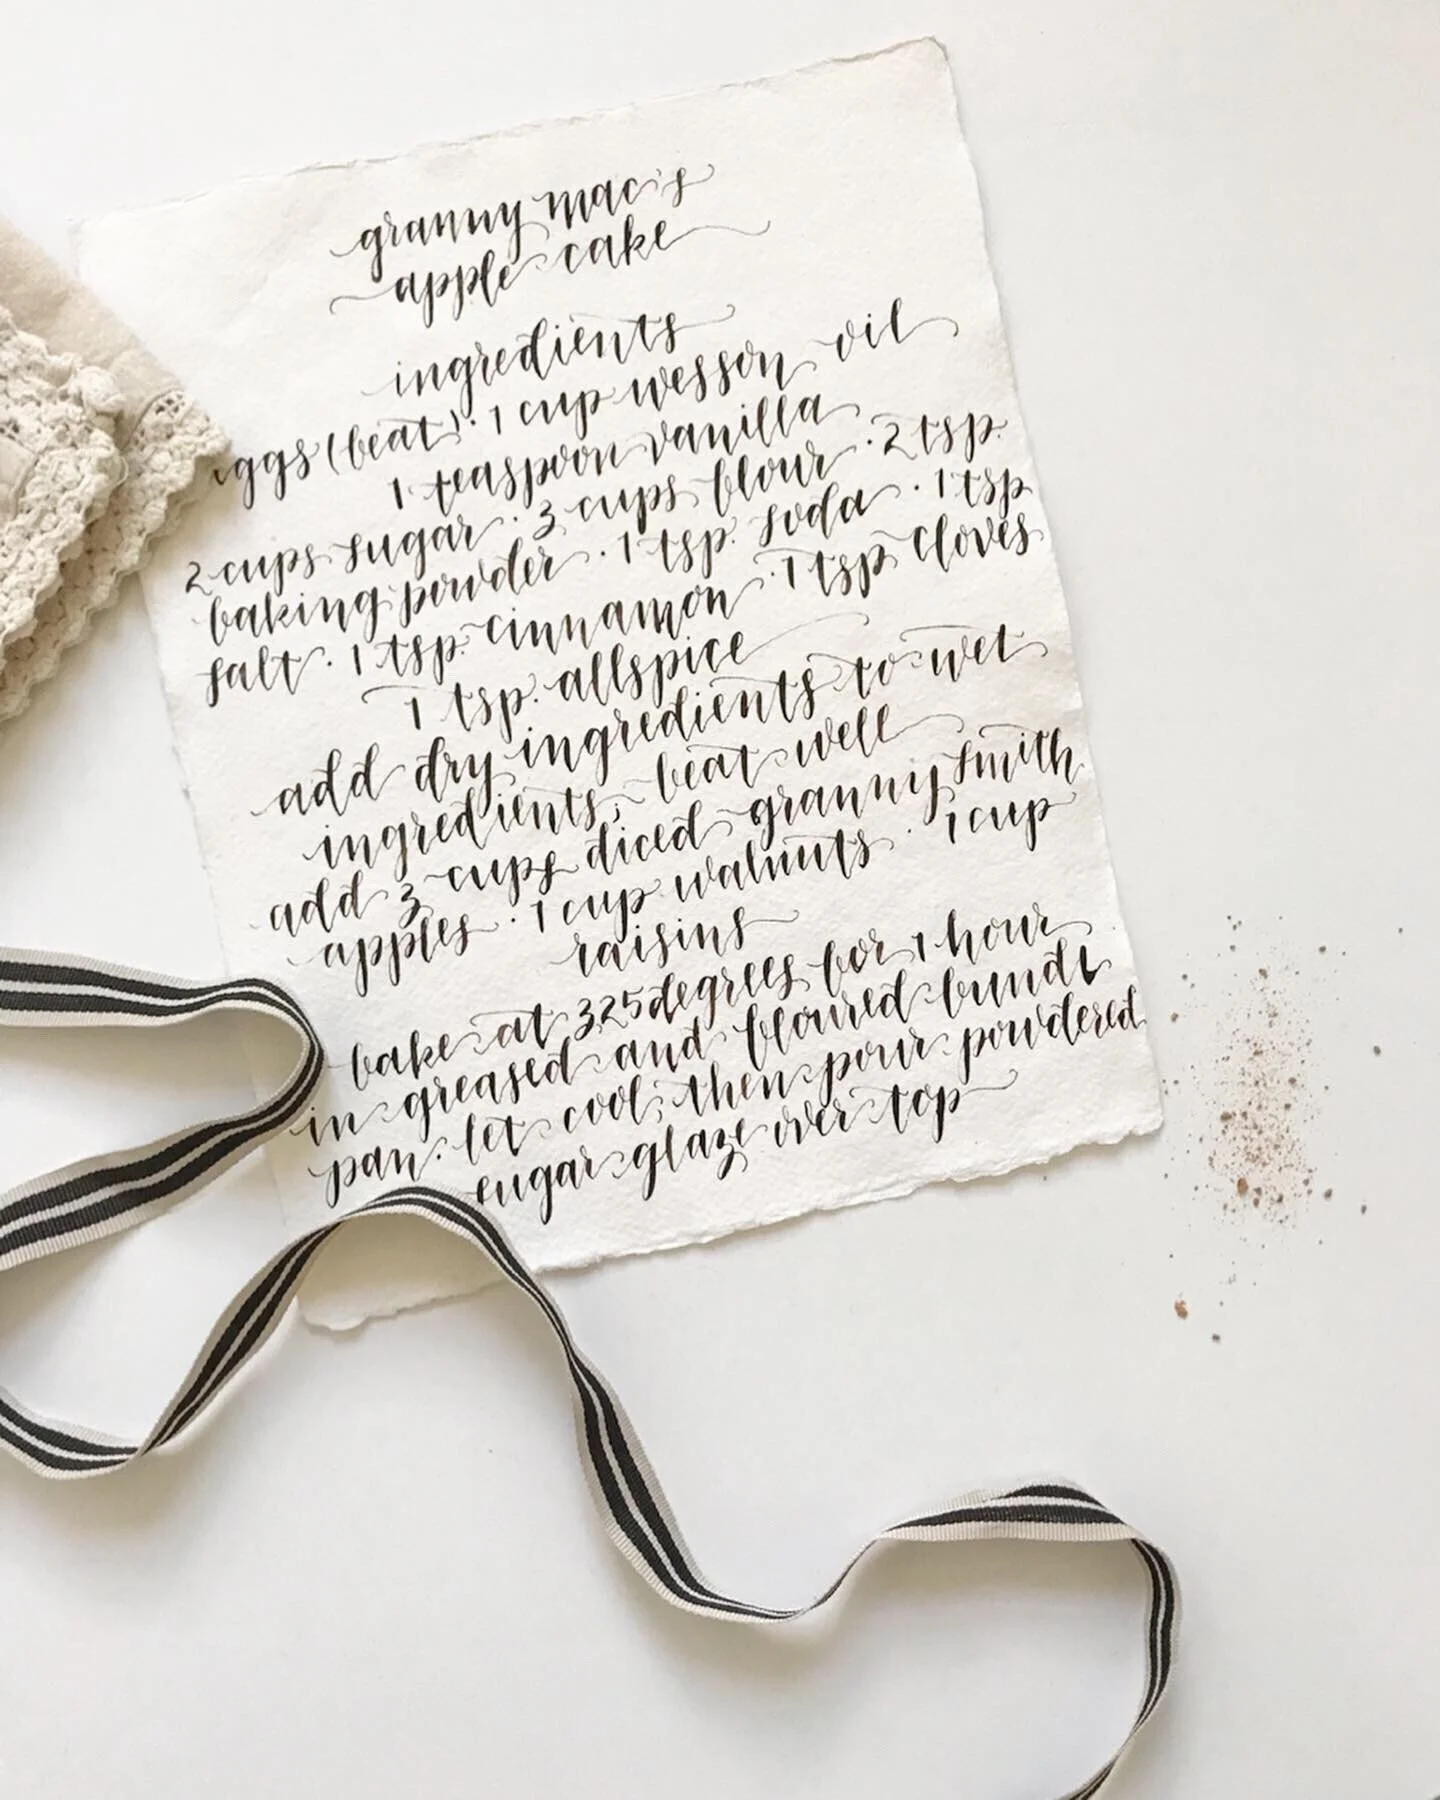 granny mac's
apple cake
ingredients
eggs (beat) · 1 cup wesson oil
1 teaspoon vanilla
2 cups sugar · 3 cups flour · 2 tsp.
baking powder · 1 tsp. soda · 1 tsp
salt · 1 tsp. cinnamon · 1 tsp cloves
1 tsp. allspice
add dry ingredients to wet
ingredients; beat well
add 3 cups diced granny smith
apples · 1 cup walnuts · 1 cup
raisins
bake at 325 degrees for 1 hour
in greased and floured bundt
pan. let cool; then pour powdered
sugar glaze over top